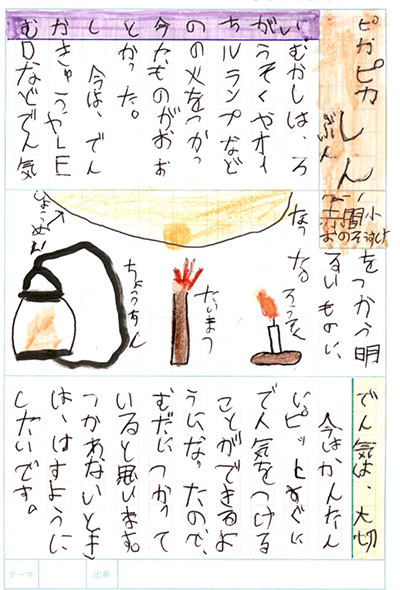 ピカピカ
しん
ぶん
むかしと今のちがい
むかしは、ろ
うそくやオイ
ルランプなど
の火をつかっ
たものがおお
かった。
今は、でん
かきゅうやLE
Dなどでん気
をつかう明
るいものに、
ろうそく
たいまつ
ちょうちん
しょうめい
でん気は、大切
今はかんたん
に。ピッとすぐに
でん気をつける
ことができるよ
うになったので、
むだにつかって
いると思います。
つかわないとき
は、けすように
したいです。
テーマ
出典